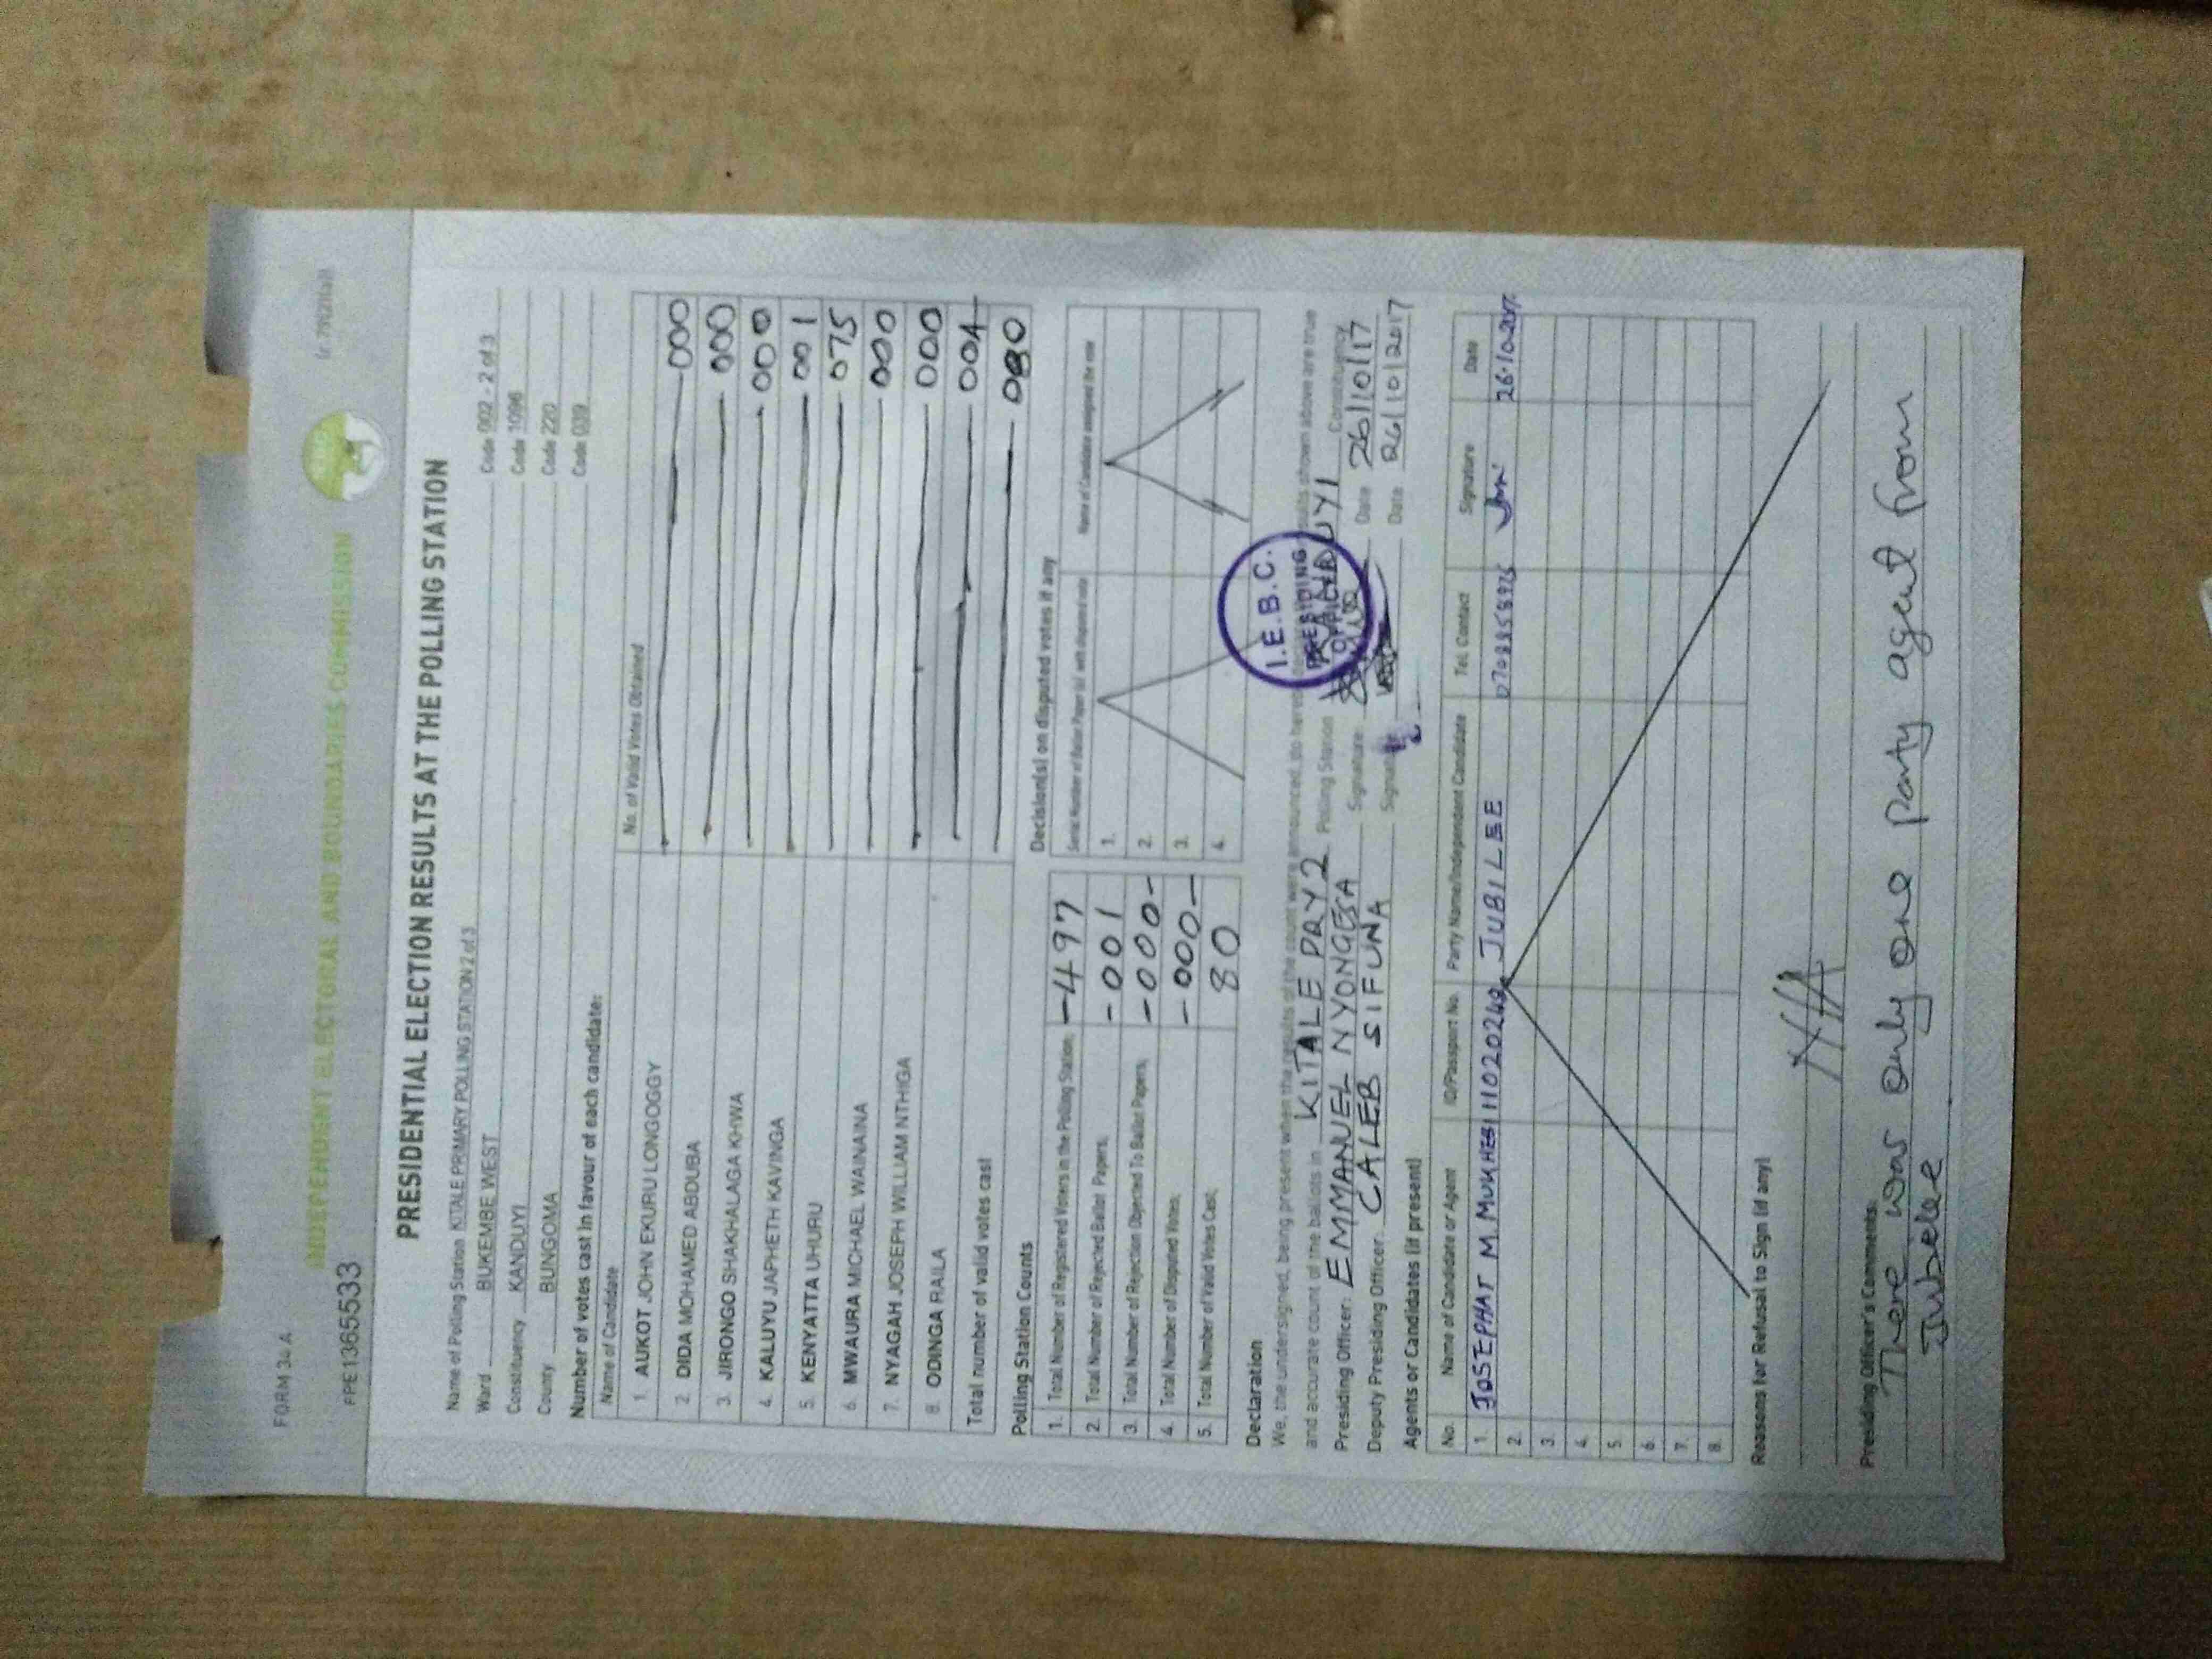 FORM 34 A
INDEPENDENT ELECTORAL AND BOUNDARIES COMMISSION
FPE1365533
PRESIDENTIAL ELECTION RESULTS AT THE POLLING STATION
Name of Polling Station KITALE PRIMARY POLLING STATION 2 of 3 Code 002 - 2 of 3
Ward BUKEMBE WEST Code 1096
Constituency KANDUYI Code 220
County BUNGOMA Code 039
Number of votes cast in favour of each candidate:
Name of Candidate No. of Valid Votes Obtained
1. AUKOT JOHN EKURU LONGOGGY 000
2. DIDA MOHAMED ABDUBA 000
3. JIRONGO SHAKHALAGA KHWA 000
4. KALUYU JAPHETH KAVINGA 001
5. KENYATTA UHURU 075
6. MWAURA MICHAEL WAINAINA 000
7. NYAGAH JOSEPH WILLIAM NTHIGA 000
8. ODINGA RAILA 004
Total number of valid votes cast 080
Polling Station Counts
1. Total Number of Registered Voters in the Polling Station; -497
2. Total Number of Rejected Ballot Papers; -001
3. Total Number of Rejection Objected To Ballot Papers; -000-
4. Total Number of Disputed Votes; -000-
5. Total Number of Valid Votes Cast; 80
Decision(s) on disputed votes if any
Serial Number of Ballot Paper (s) with disputed vote Name of Candidate assigned the vote
1.
2.
3.
4.
Declaration
We, the undersigned, being present when the results of the count were announced, do hereby results shown above are true
and accurate count of the ballots in KITALE PRY 2 Polling Station KANDUYI Constituency
I.E.B.C.
PRESIDING
OFFICER
Presiding Officer: EMMANUEL NYONGESA Signature: Date 26/10/17
Deputy Presiding Officer: CALEB SIFUNA Signature Date 26/10/2017
Agents or Candidates (if present)
No. Name of Candidate or Agent ID/Passport No. Party Name/Independent Candidate Tel. Contact Signature Date
1. JOSEPHAT M. MUKHEBI JUBILEE 26.10.2017
2.
3.
4.
5.
6.
7.
8.
Reasons for Refusal to Sign (if any)
Presiding Officer's Comments:
There was only one party agent from
Jubilee